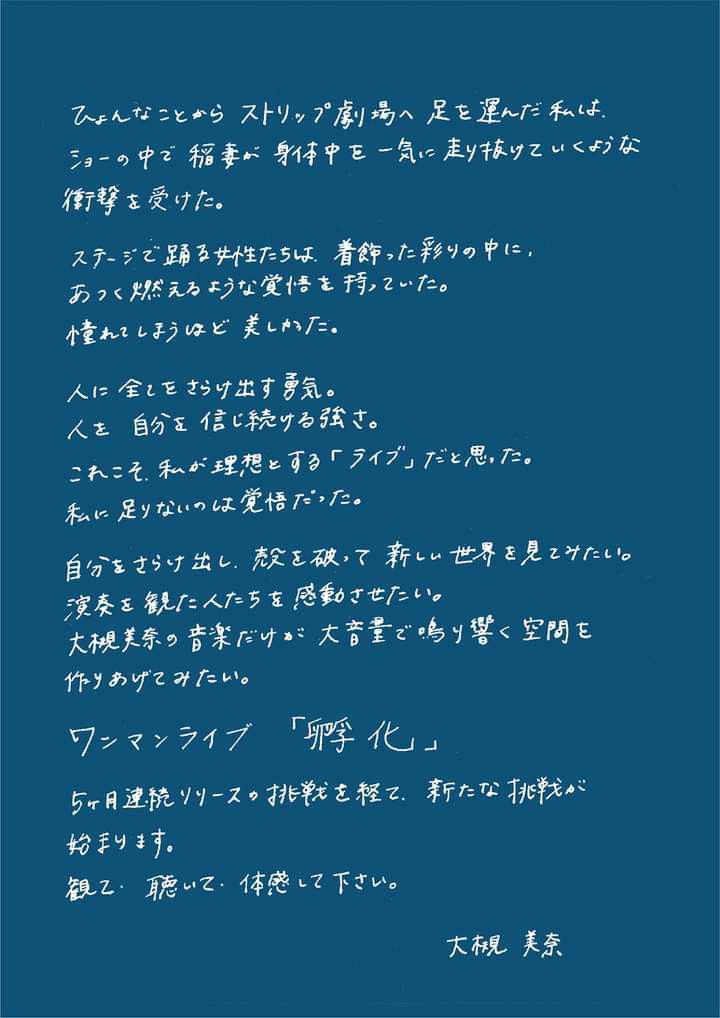 ひょんなことから ストリップ劇場へ 足を運んだ私は、
ショーの中で 稲妻が 身体中を 一気に走り抜けていくような
衝撃を受けた。
ステージで踊る女性たちは、着飾った彩りの中に、
あつく燃えるような覚悟を持っていた。
憧れてしまうほど 美しかった。
人に 全てをさらけ出す勇気。
人を 自分を 信じ続ける強さ。
これこそ、私が理想とする「ライブ」だと思った。
私に足りないのは覚悟だった。
自分をさらけ出し、殻を破って 新しい世界を見てみたい。
演奏を観た人たちを感動させたい。
大槻美奈の音楽だけが 大音量で鳴り響く空間を
作りあげてみたい。
ワンマンライブ 「孵化」
5ヶ月連続リリースの挑戦を経て、新たな挑戦が
始まります。
観て、聴いて、体感して下さい。
大槻 美奈